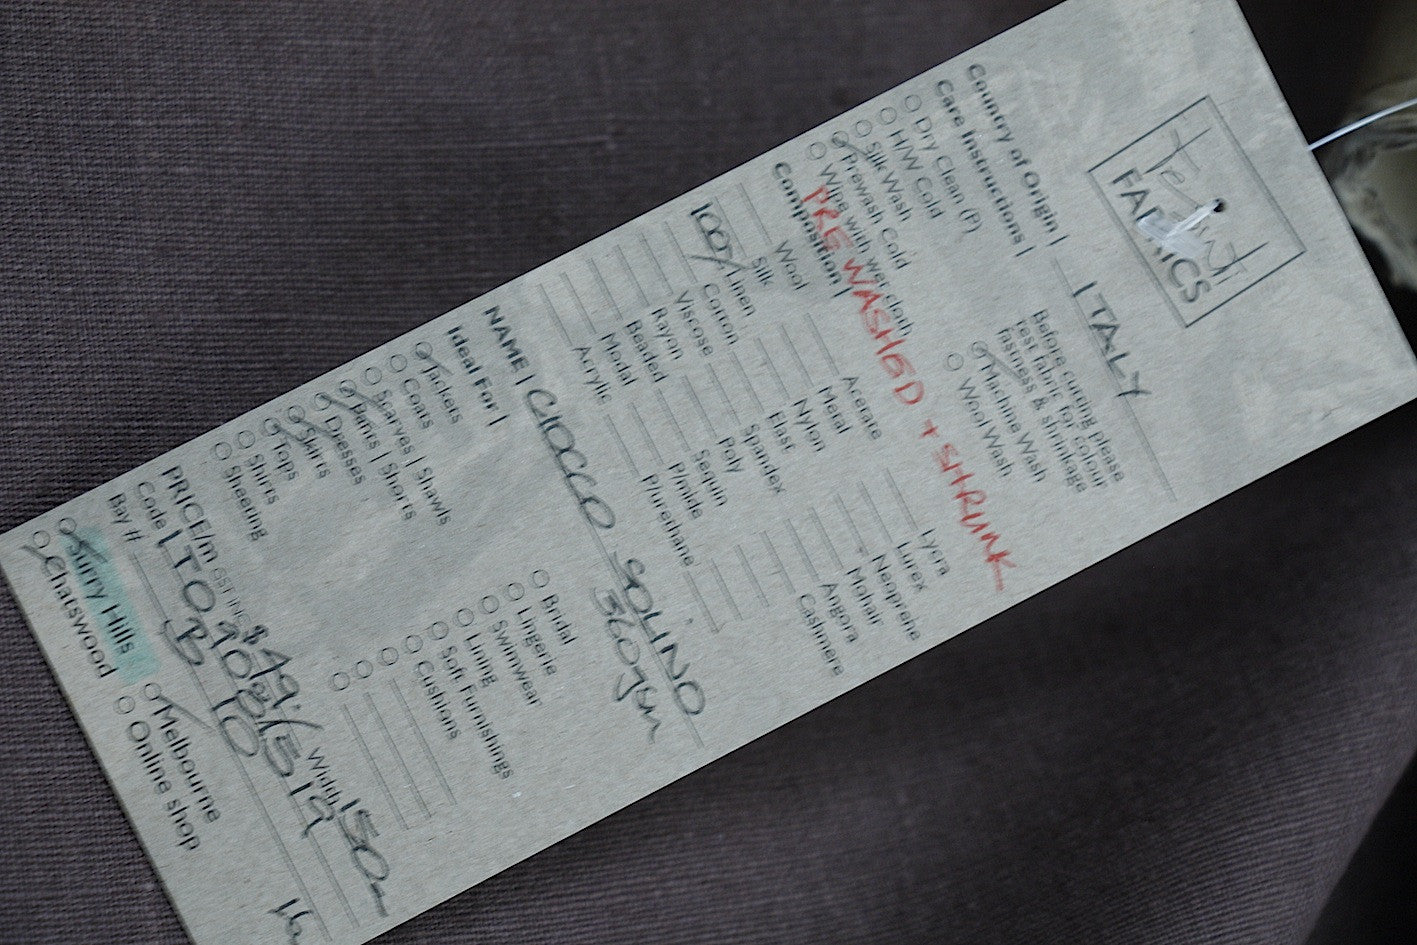 The Fabric
FABRICS
Country of Origin | ITALY
Care Instructions |
Dry Clean (P)
H/W Cold
Silk Wash
Prewash Cold
Wipe with wet cloth
Before cutting please
test fabric for colour
fastness & shrinkage
Machine Wash
Wool Wash
PREWASHED + SHRUNK
Composition |
Wool
Silk
100% Linen
Cotton
Viscose
Rayon
Beaded
Modal
Acrylic
Acetate
Metal
Nylon
Elast
Spandex
Poly
Sequin
P/mide
P/urethane
Lycra
Lurex
Neoprene
Mohair
Angora
Cashmere
NAME | CIOCCO SOLINO
360gsm
Ideal For |
Jackets
Coats
Scarves | Shawls
Pants | Shorts
Dresses
Skirts
Tops
Shirts
Sheeting
Bridal
Lingerie
Swimwear
Lining
Soft Furnishings
Cushions
PRICE/m GST inc $49.-/ Width 150
Code |
Bay # B 10
Surry Hills
Chatswood
Melbourne
Online shop